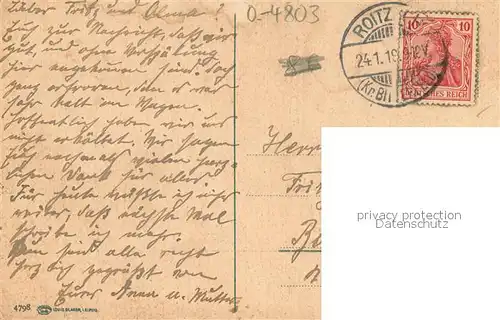 Lieber Fritz und Alma!
Euch zur Nachricht, daß wir
gut und ohne Verspätung
hier angekommen sind. Doch
ganz erfroren, denn es war
sehr kalt im Wagen.
Hoffentlich haben wir uns
nicht erkältet. Wir sagen
Euch nochmals vielen herz-
lichen Dank für alles.
Für heute
weiter, daß nächste Mal
schreibe ich mehr.
Nun seid alle recht
herzlich gegrüßt von
Eurer Anna u. Mutter
0-4803
ROITZ
24.1.19
10 10
DEUTSCHES REICH
Herrn
Frit
privacy protection
www.ansichtskartenversand.com
4798